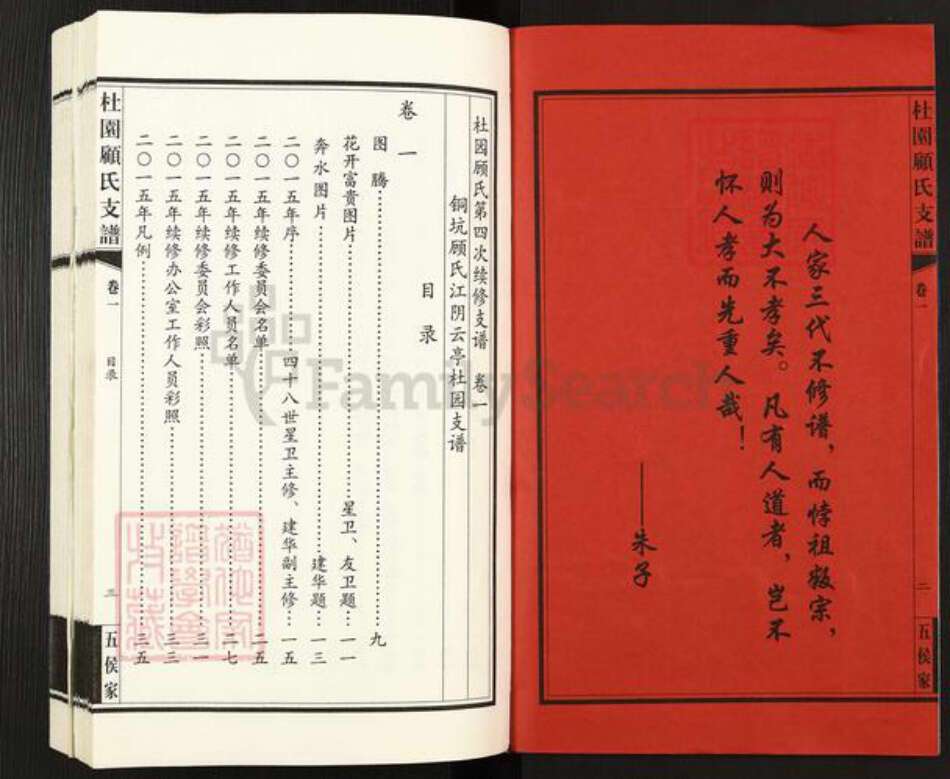 杜園顧氏支譜
卷一
二
五侯家
人家三代不修谱，而悖祖叛宗，
则为大不孝矣。凡有人道者，岂不
怀人孝而先重人哉！
——朱子
杜园顾氏第四次续修支谱 卷一
铜坑顾氏江阴云亭杜园支谱
目录
卷一
图腾……九
花开富贵图片……星卫、友卫题……一一
奔水图片……建华题……一三
二〇一五年序……四十八世星卫主修、建华副主修……一五
二〇一五年续修委员会名单……二五
二〇一五年续修工作人员名单……二七
二〇一五年续修委员会彩照……三一
二〇一五年续修办公室工作人员彩照……三三
二〇一五年凡例……三五
杜園顧氏支譜
卷一
目录
三
五侯家
FamilySearch